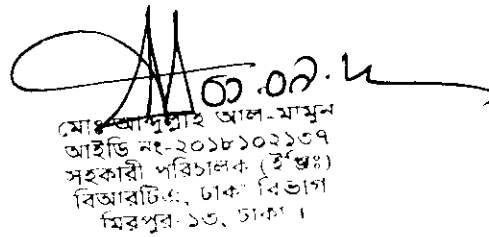 ৩১.০১.২
মোঃ আব্দুল্লাহ আল-মামুন
আইডি নং-২০১৮১০২১৩৭
সহকারী পরিচালক (ইঞ্জিঃ)
বিআরটিএ, ঢাকা বিভাগ
মিরপুর-১৩, ঢাকা ।